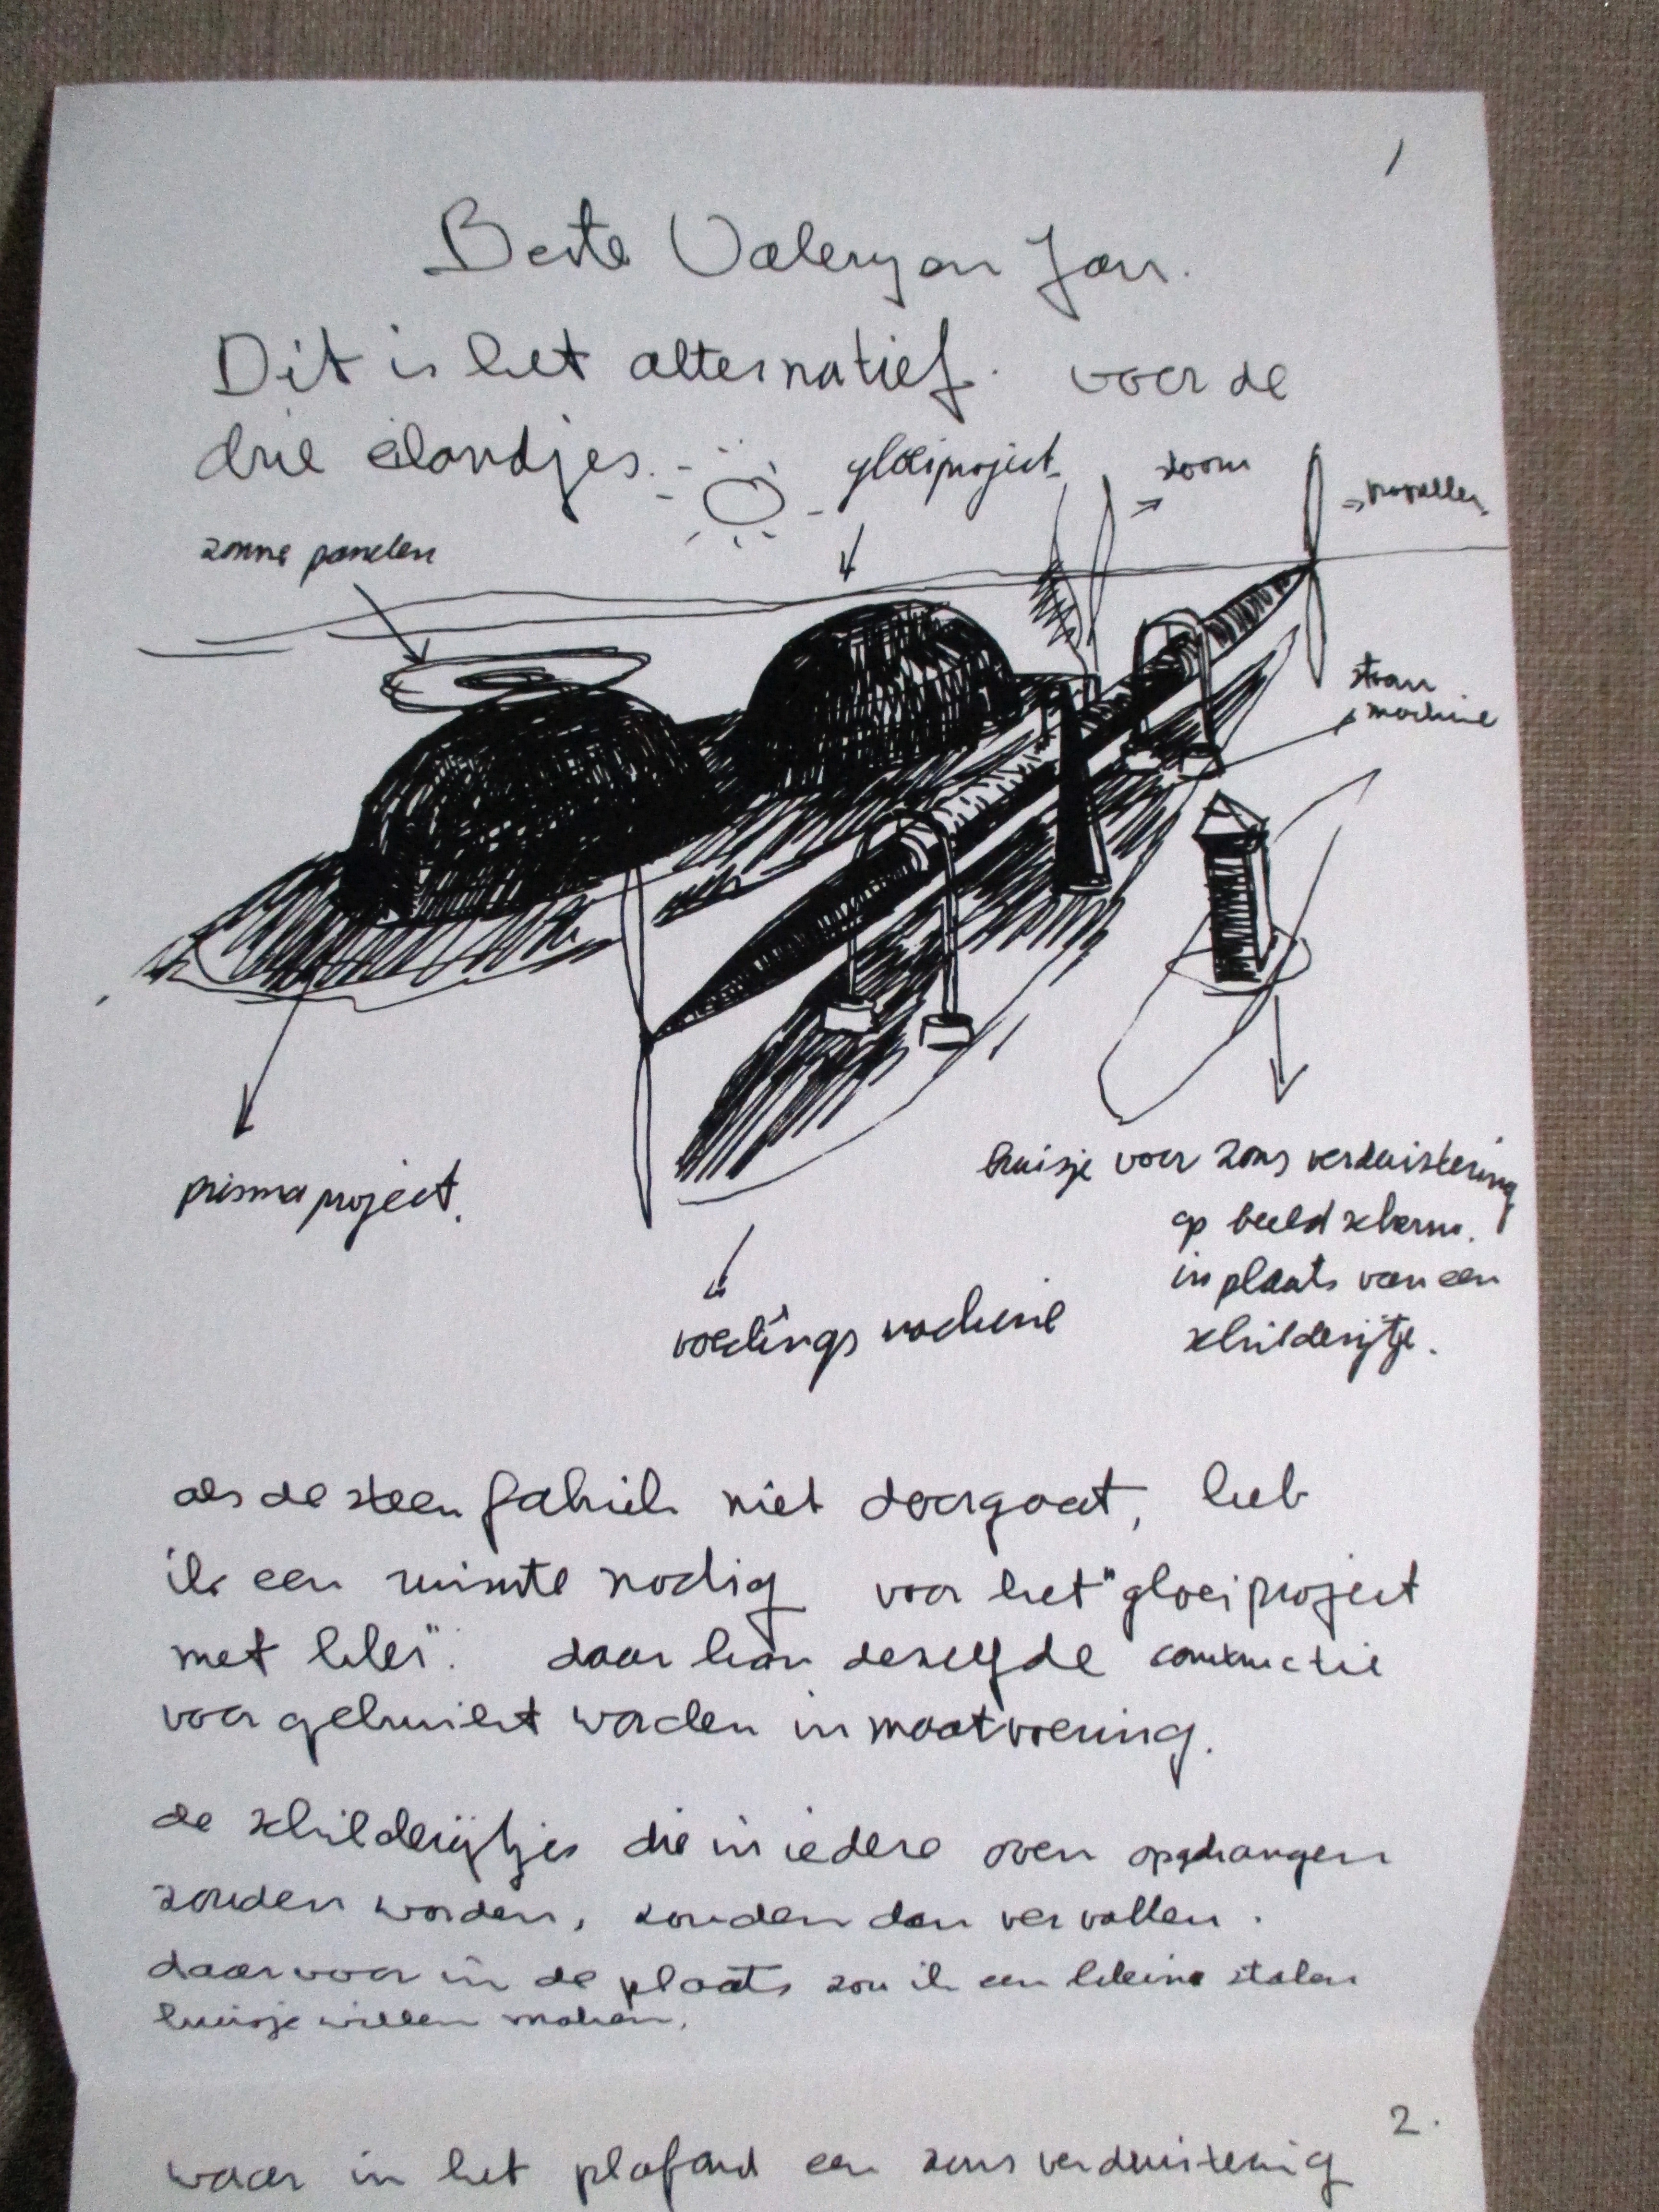 1
Beste Valery en Jan.
Dit is het alternatief. voor de
drie eilandjes.
gloeiproject
stoom
propeller
zonne panelen
stoom
machine
prisma project.
huisje voor zons verduistering
op beeldscherm.
in plaats van een
schilderijtje.
voedings machine
als de steen fabriek niet doorgaat, heb
ik een ruimte nodig voor het "gloeiproject
met klei". daar kan dezelfde constructie
voor gebruikt worden in maatvoering.
de schilderijtjes die in iedere oven opgehangen
zouden worden, zouden dan vervallen.
daarvoor in de plaats zou ik een kleine stalen
huisje willen maken.
2.
waar in het plafond een zons verduistering